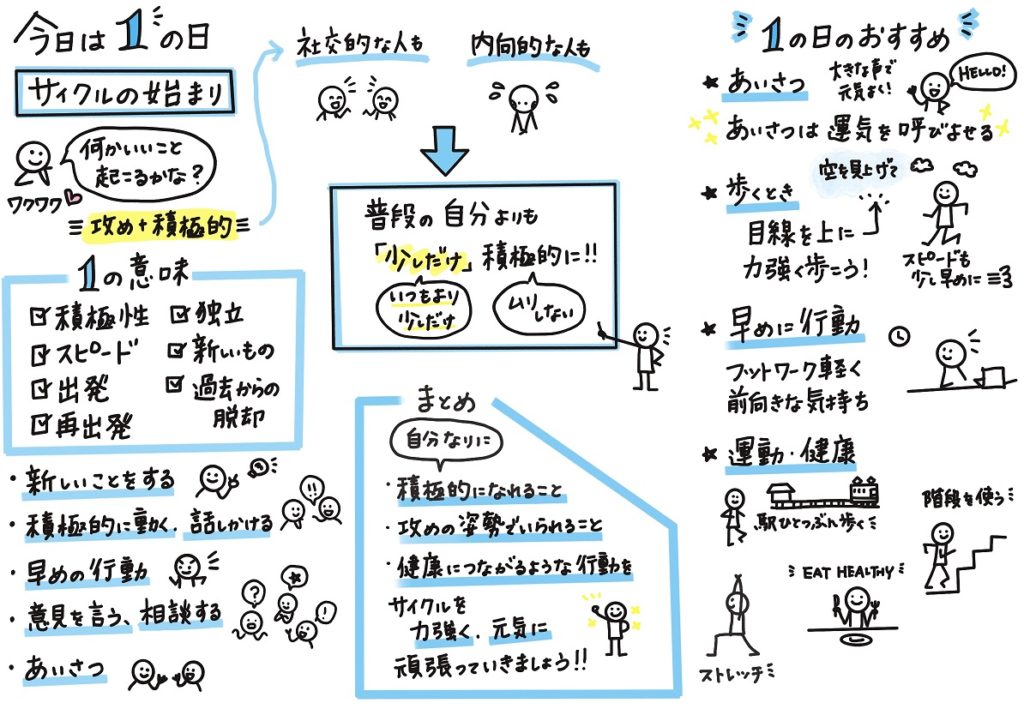 今日は1の日
サイクルの始まり
何かいいこと
起こるかな？
ワクワク
攻め+積極的
社交的な人も
内向的な人も
普段の自分よりも
「少しだけ」積極的に!!
いつもより
少しだけ
ムリ
しない
1の意味
積極性
スピード
出発
再出発
独立
新しいもの
過去からの
脱却
・新しいことをする
・積極的に動く、話しかける
・早めの行動
・意見を言う、相談する
・あいさつ
まとめ
自分なりに
・積極的になれること
・攻めの姿勢でいられること
・健康につながるような行動を
サイクルを
力強く、元気に
頑張っていきましょう!!
1の日のおすすめ
★あいさつ
大きな声で
元気よく!
HELLO!
あいさつは運気を呼びよせる
★歩くとき
空を見上げて
目線を上に
力強く歩こう!
スピードも
少し早めに
★早めに行動
フットワーク軽く
前向きな気持ち
★運動・健康
駅ひとつぶん歩く
階段を使う
ストレッチ
EAT HEALTHY